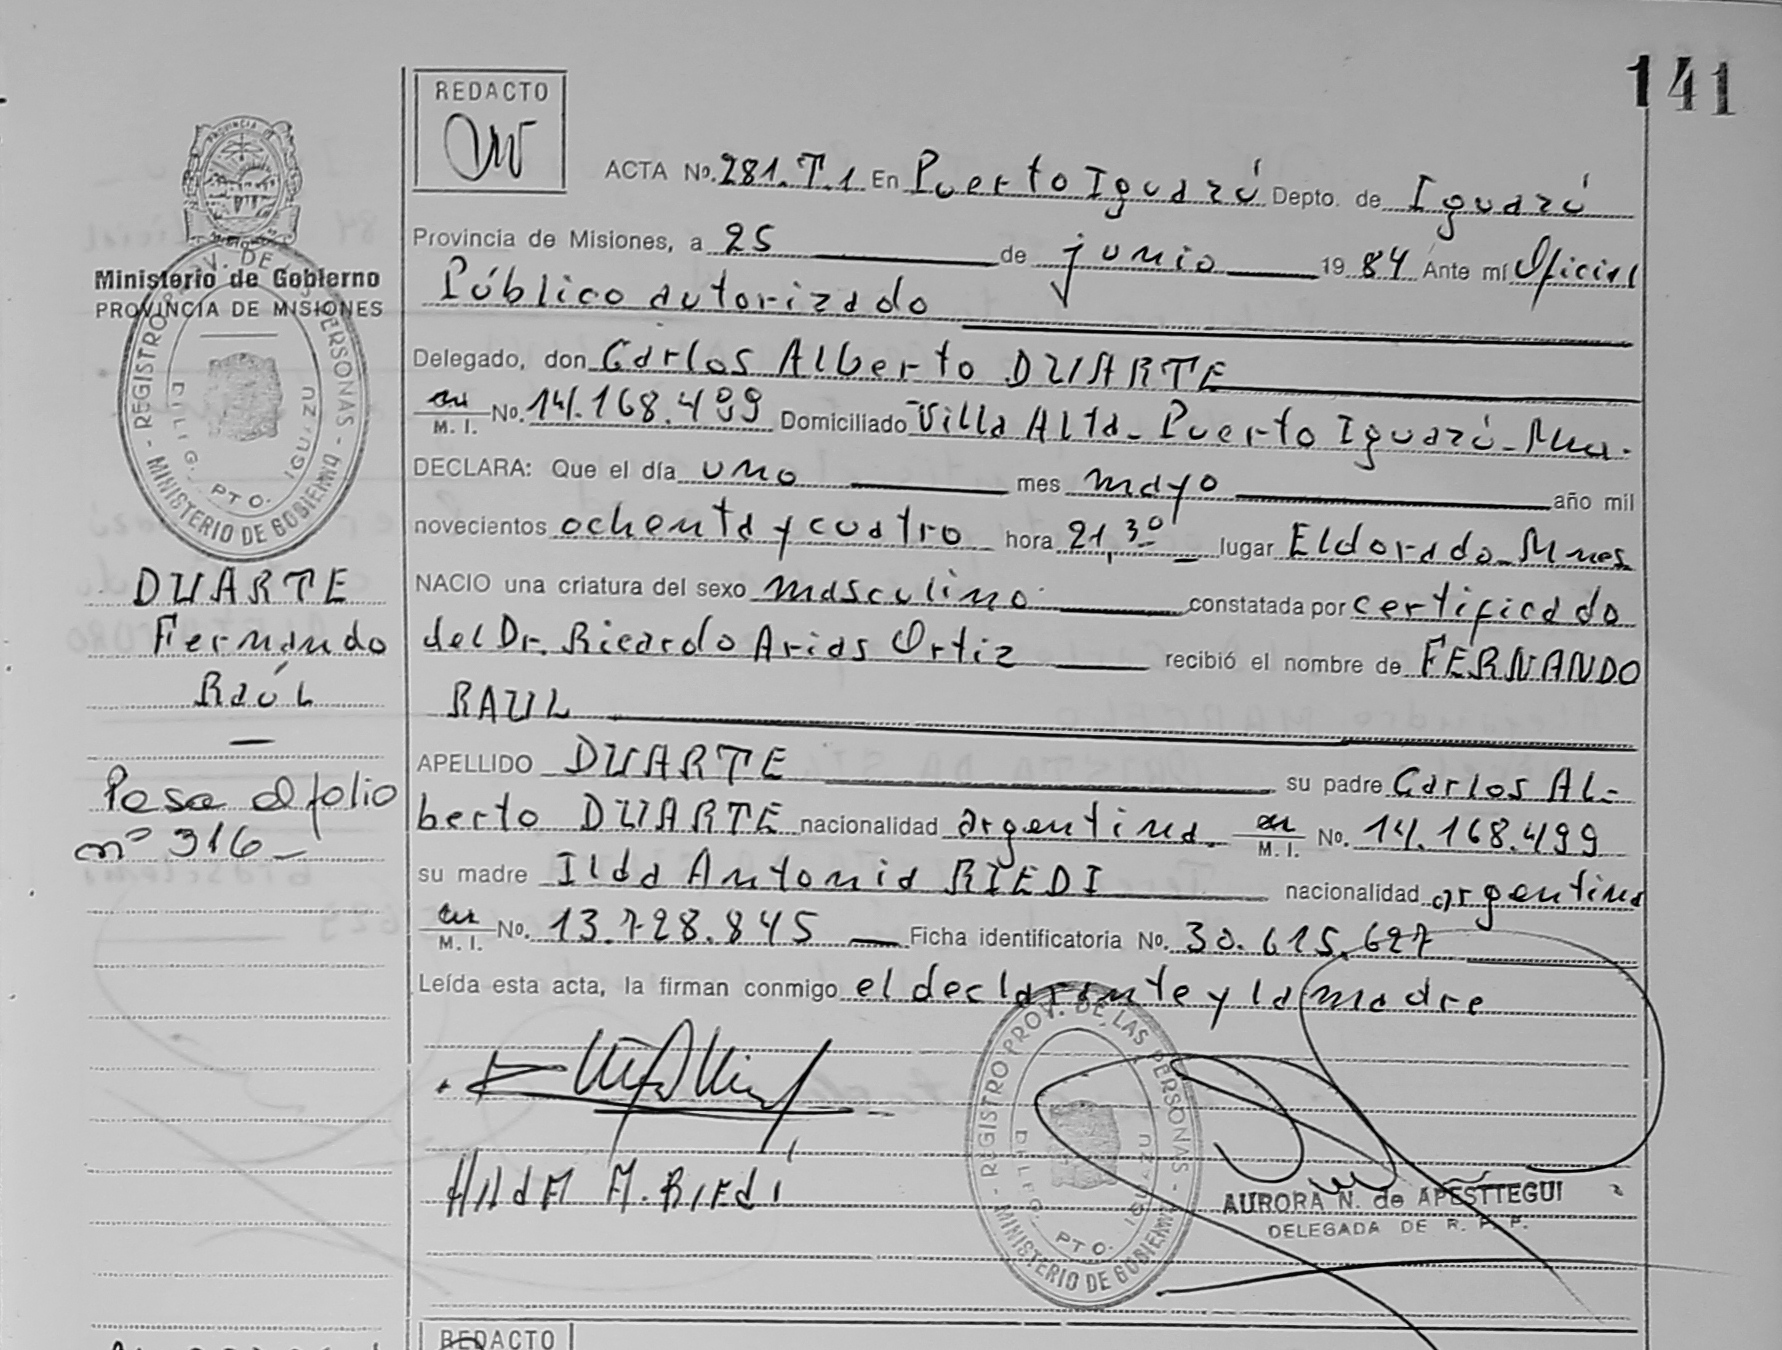 141
REDACTO
ACTA No. 281.T.1 En Puerto Iguazú Depto. de Iguazú
Provincia de Misiones, a 25 de junio 1984 Ante mí Oficial
Público autorizado
Delegado, don Carlos Alberto DUARTE
M. I. No. 14.168.499 Domiciliado Villa Alta - Puerto Iguazú -
DECLARA: Que el día uno mes mayo año mil
novecientos ochenta y cuatro hora 21,30 lugar Eldorado - Mnes
NACIO una criatura del sexo masculino constatada por certificado
del Dr. Ricardo Arias Ortiz recibió el nombre de FERNANDO
RAUL
APELLIDO DUARTE su padre Carlos Al-
berto DUARTE nacionalidad argentina. M. I. No. 14.168.499
su madre Ilda Antonia RIEDI nacionalidad argentina
M. I. No. 13.728.845 Ficha identificatoria No. 30.615.627
Leída esta acta, la firman conmigo el declarante y la madre
Hilda A. Riedi
AURORA N. de APESTTEGUI
DELEGADA DE R. P. P.
REGISTRO PROV. DE LAS PERSONAS - MINISTERIO DE GOBIERNO -
DLEG. PTO. IGUAZU
PROVINCIA DE MISIONES
Ministerio de Gobierno
PROVINCIA DE MISIONES
REGISTRO PROV. DE LAS PERSONAS - MINISTERIO DE GOBIERNO -
DLIG. PTO. IGUAZU
DUARTE
Fernando
Raúl
—
Pasa al folio
nº 316 -
REDACTO